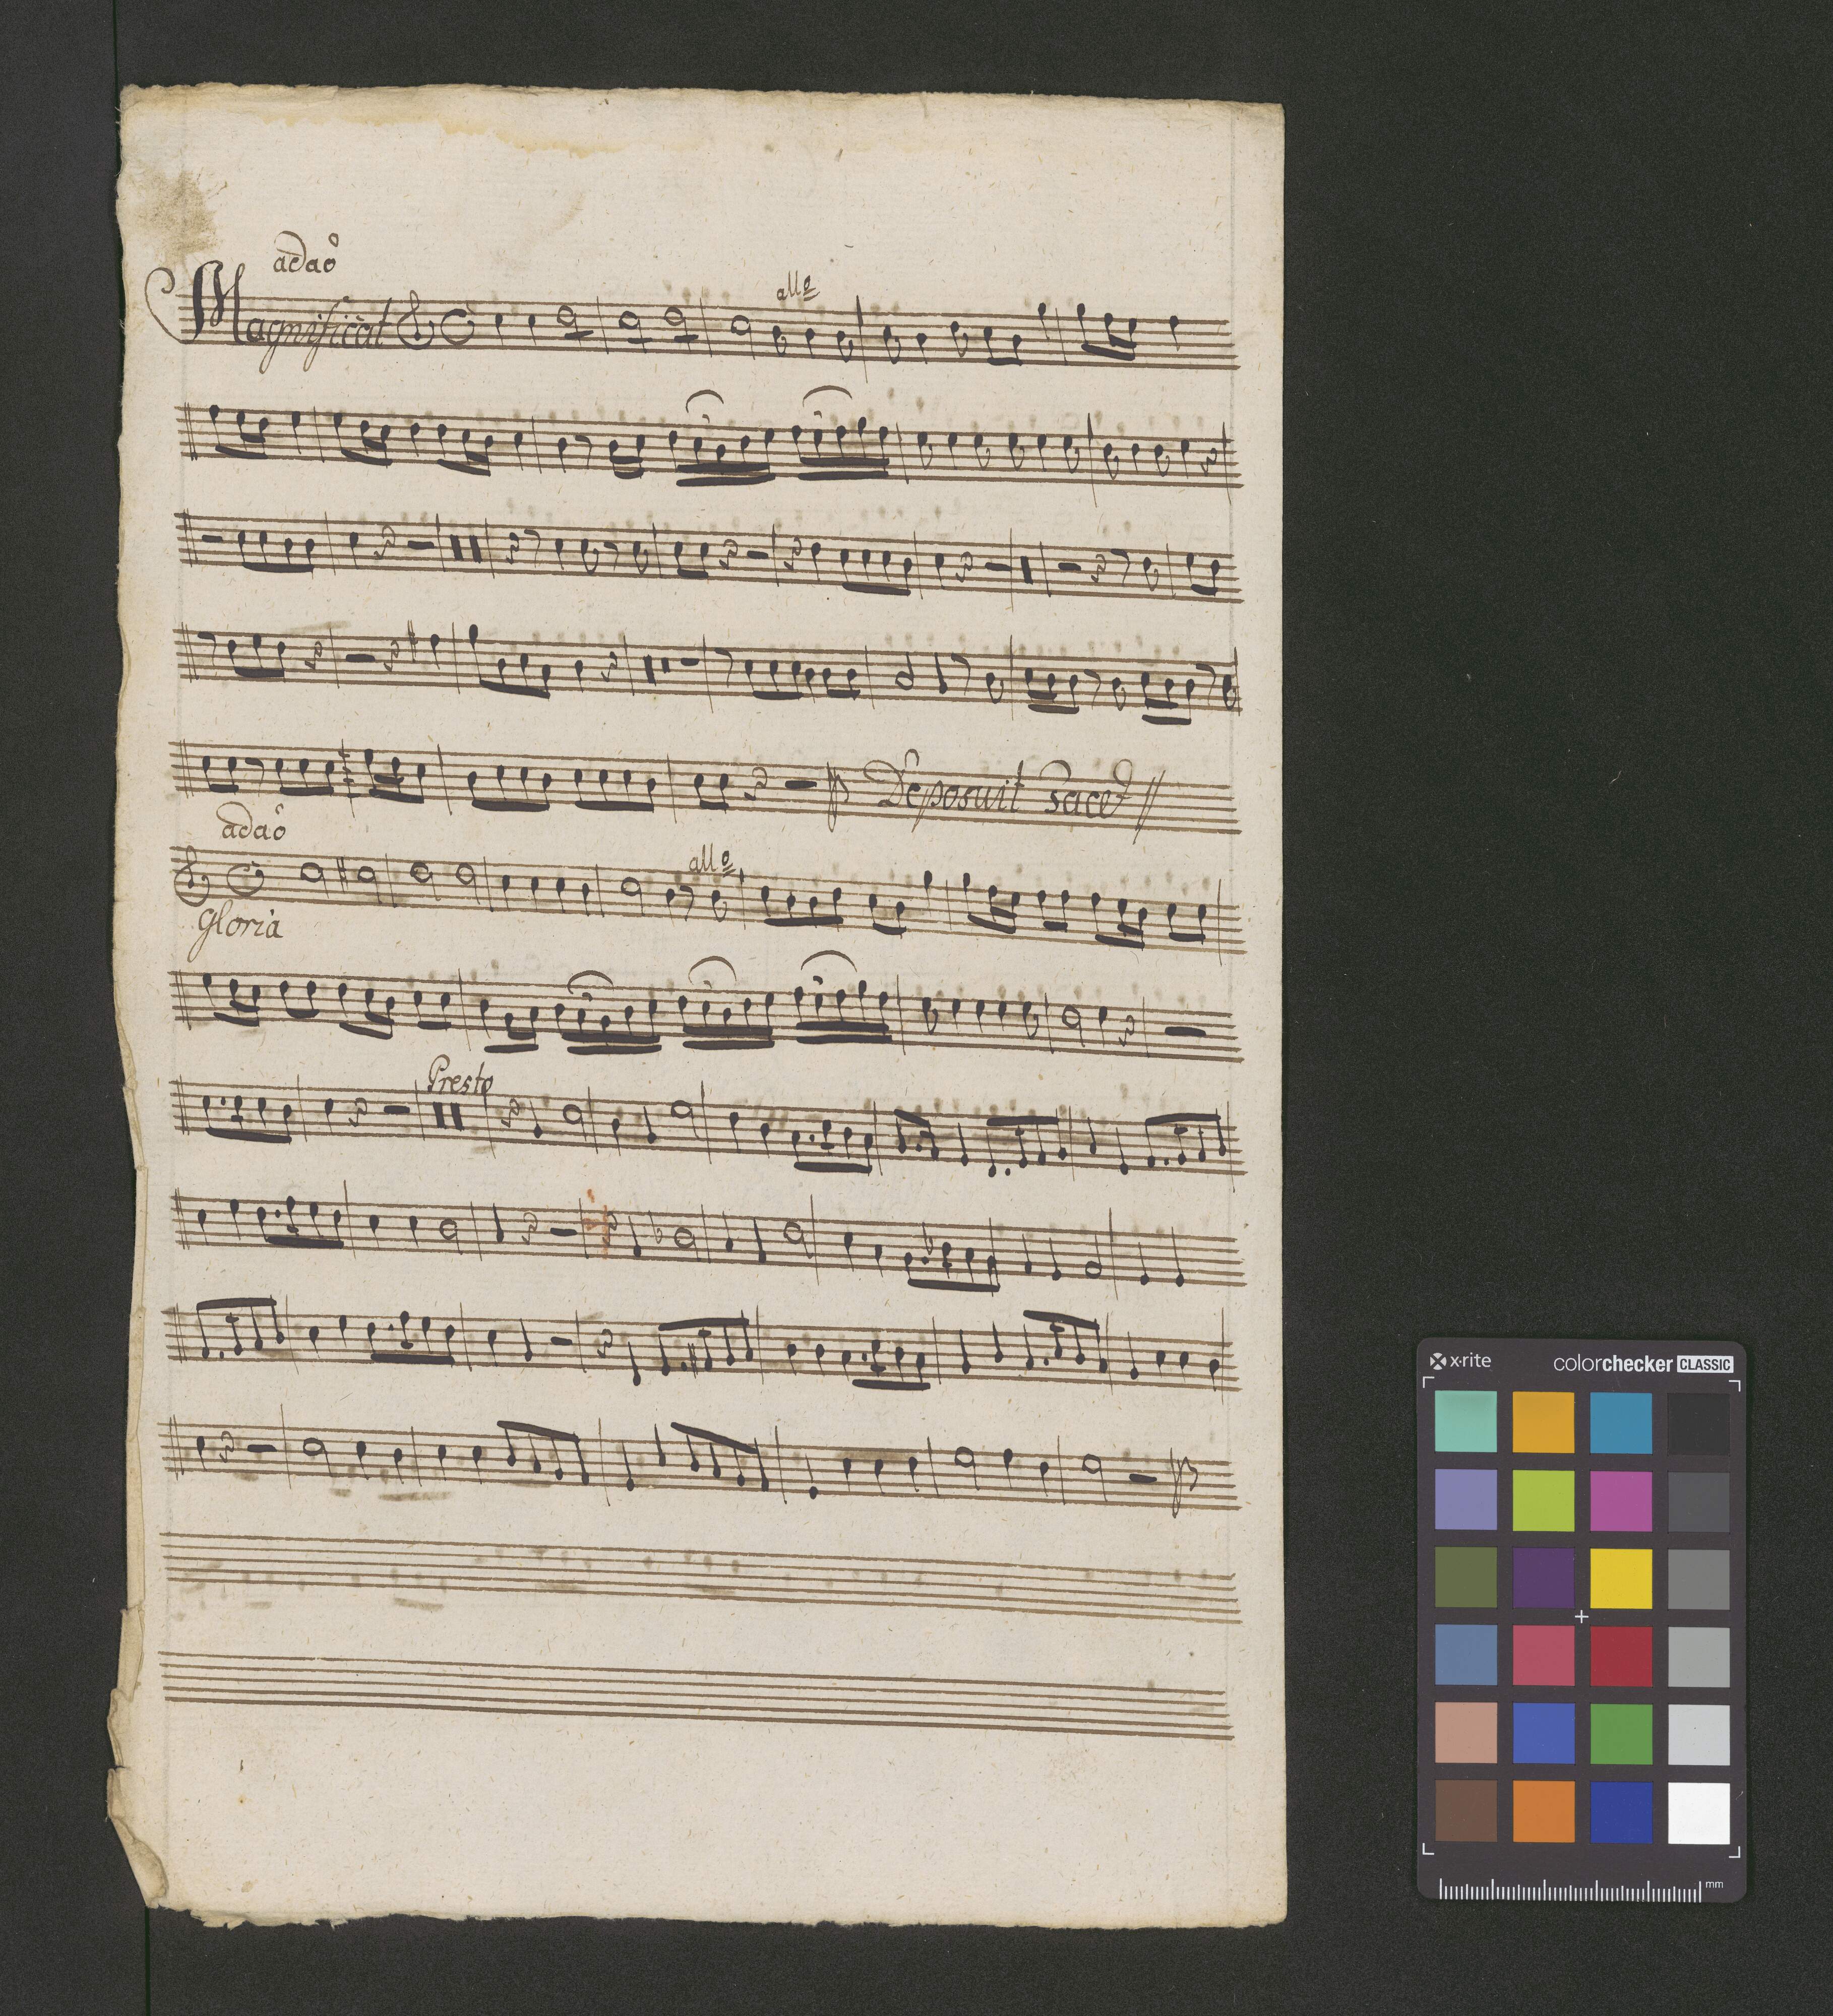 adaº
Magnificat
allº
Deposuit Tacet //
adaº
allº
Gloria
Presto
x-rite
colorchecker CLASSIC
mm